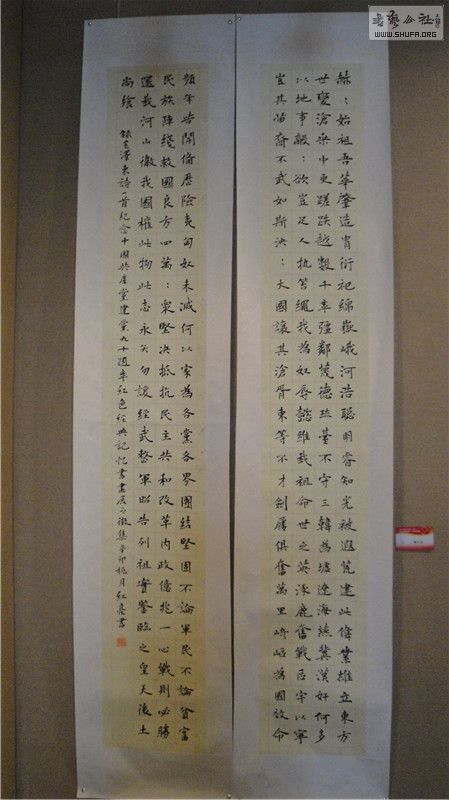 藝公社
WWW.SHUFA.ORG
赫：始祖吾華肇造胄衍祀綿嶽峨河浩聰明睿知光被遐荒建此偉業雄立東方
世變滄桑中更蹉跌越數千年强鄰蔑德琉臺不守三韓為墟遼海燕冀漢奸何多
以地事敵：欲豈足人執笞繩我為奴辱懿維我祖命世之英涿鹿奮戰區宇以寧
豈其苗裔不武如斯泱：大國讓其淪胥東等不才劍屨俱奮萬里崎嶇為國效命
頻年苦鬥備歷險夷匈奴未滅何以家為各黨各界團結堅固不論軍民不論貧富
民族陣綫救國良方四萬：眾堅決抵抗民主共和改革内政億兆一心戰則必勝
還我河山衛我國權此物此志永矢勿諼經武整軍昭告列祖實鑒臨之皇天後土
尚饗
錄毛澤東詩一首紀念中國共產黨建黨九十週年紅色經典記憶書畫展之徵集辛卯桃月紅亮書